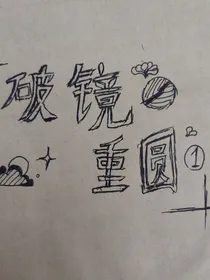 破镜
重圆①